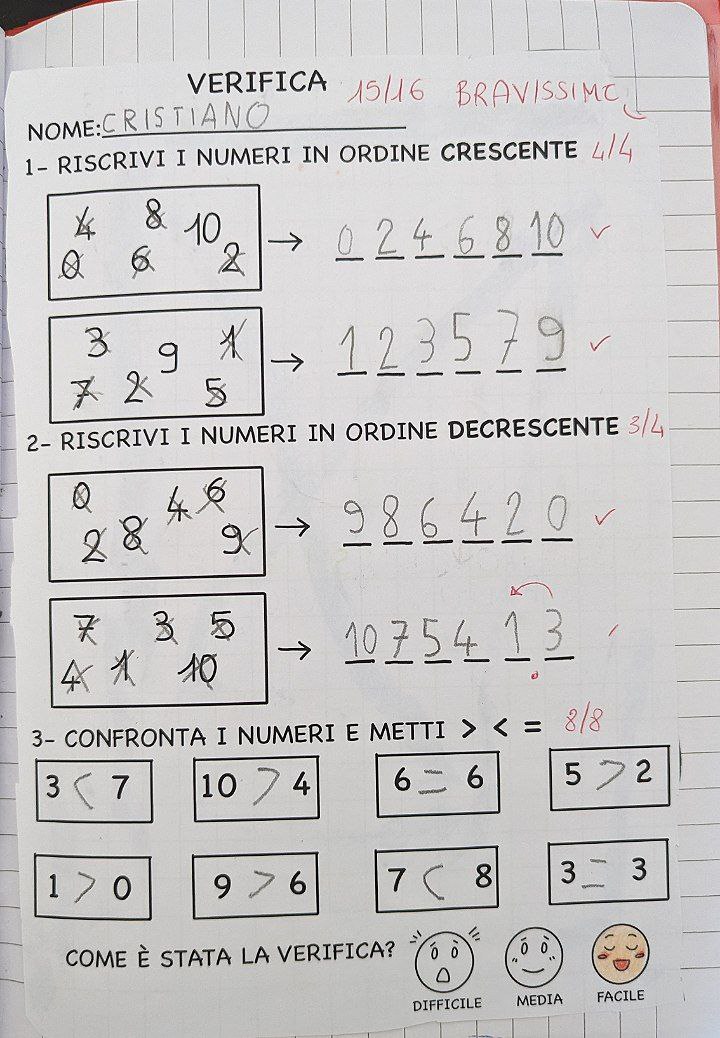 VERIFICA 15/16 BRAVISSIMO
NOME: CRISTIANO
1- RISCRIVI I NUMERI IN ORDINE CRESCENTE 4/4
4 8 10
0 6 2
→ 0 2 4 6 8 10 ✓
3 9 1
7 2 5
→ 1 2 3 5 7 9 ✓
2- RISCRIVI I NUMERI IN ORDINE DECRESCENTE 3/4
0 4 6
2 8 9
→ 9 8 6 4 2 0 ✓
7 3 5
4 1 10
→ 10 7 5 4 1 3
3- CONFRONTA I NUMERI E METTI > < = 8/8
3 < 7 10 > 4 6 = 6 5 > 2
1 > 0 9 > 6 7 < 8 3 = 3
COME È STATA LA VERIFICA?
DIFFICILE MEDIA FACILE